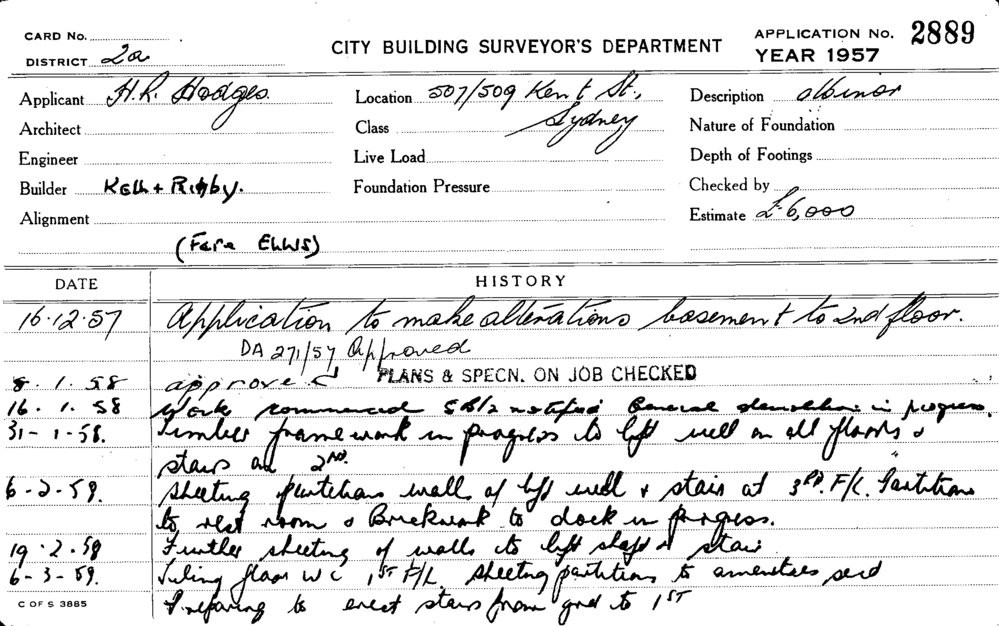 CARD No.
DISTRICT 2a
CITY BUILDING SURVEYOR'S DEPARTMENT
APPLICATION No. 2889
YEAR 1957
Applicant H.R. Hodges.
Location 507/509 Kent St., Sydney
Description
Architect
Class
Nature of Foundation
Engineer
Live Load
Depth of Footings
Builder Kell + Rigby.
Foundation Pressure
Checked by
Alignment
Estimate £6,000
DATE
HISTORY
16.12.57 Application to make alterations basement to 2nd floor.
DA 271/57 Approved
8.1.58 approved PLANS & SPECN. ON JOB CHECKED
16.1.58 Work commenced notified General demolition in progress.
31-1-58. Timber frame work in progress to lift well on all floors &
stairs on 2ND.
6-2-58. Sheeting partition walls of lift well + stair at 3RD. F/L. Partitions
to rest room & Brickwork to dock in progress.
19.2.58 Further sheeting of walls to lift shaft & stair
6-3-58. Tiling floor WC 1ST F/L. sheeting partitions to amenities
Preparing to erect stairs from grd to 1ST
C OF S 3885